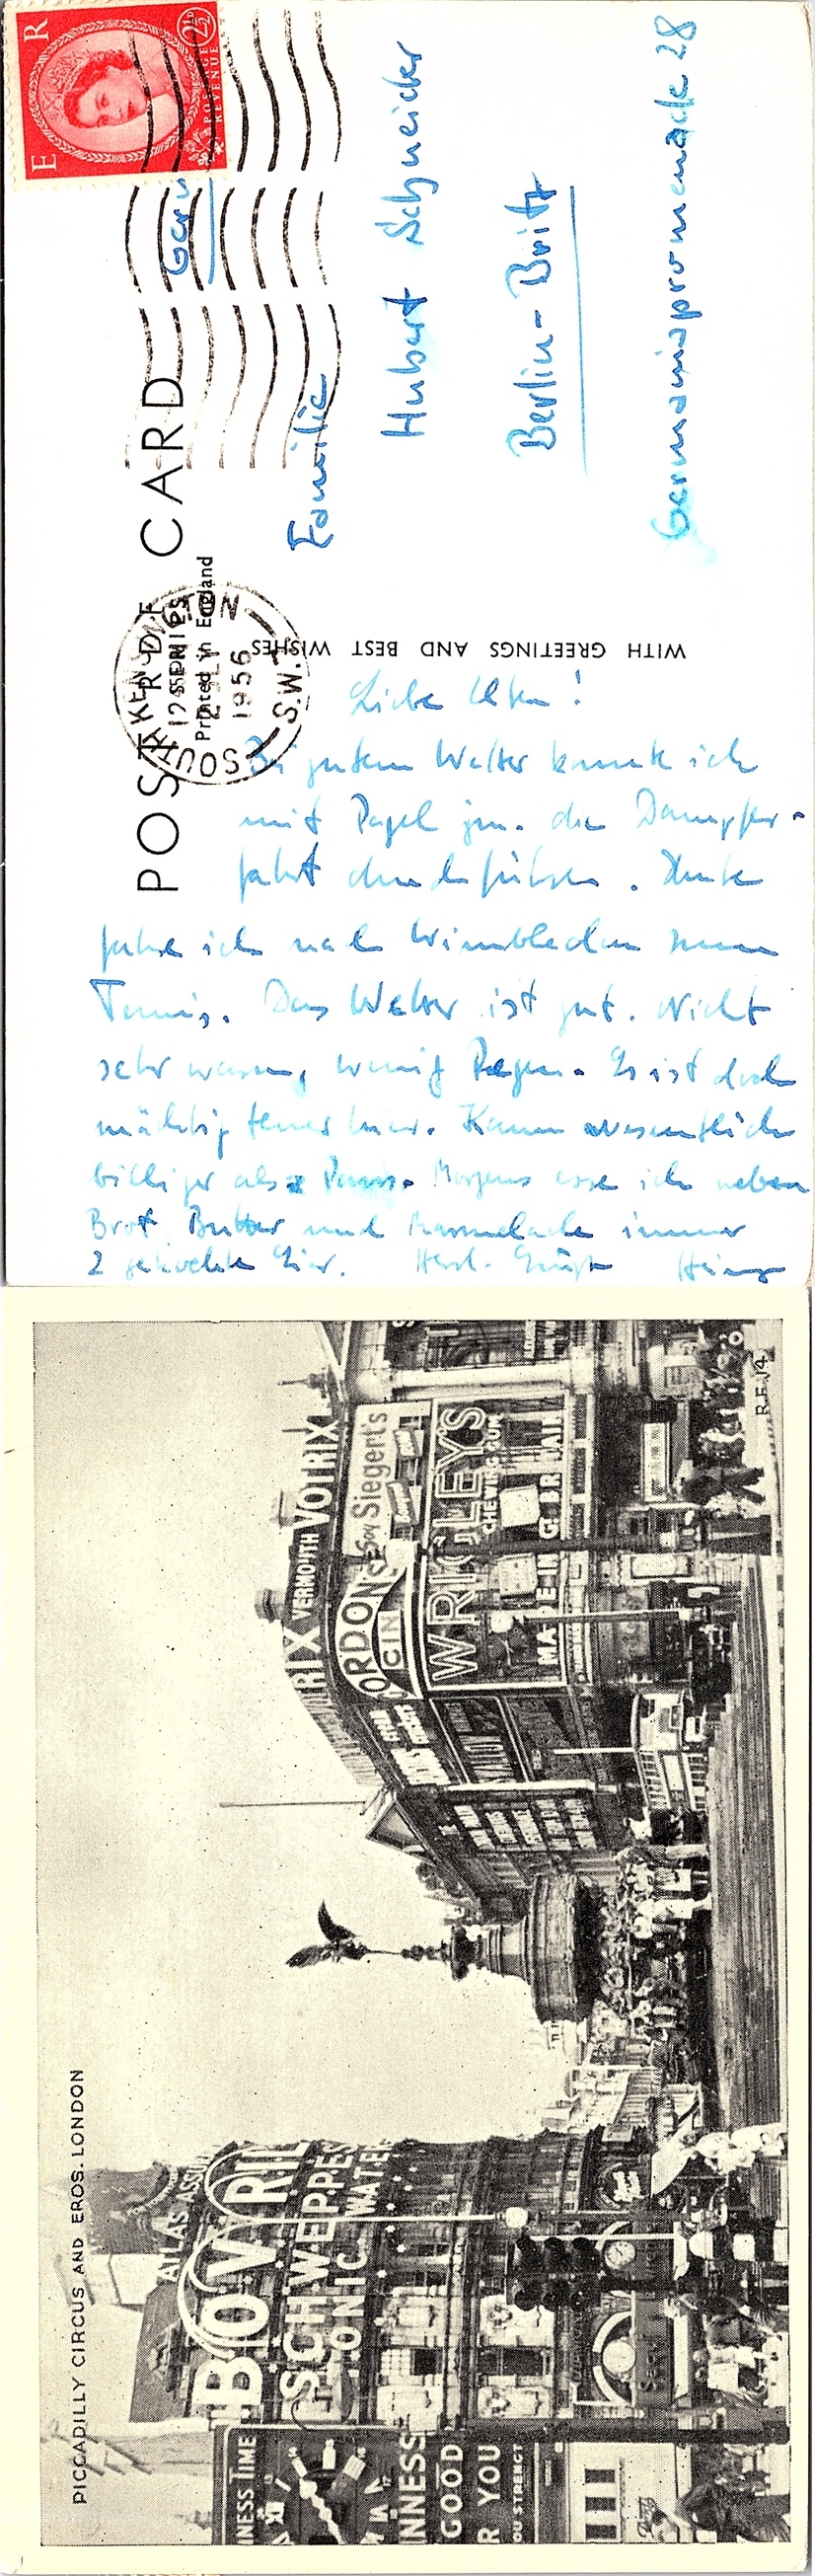 POST CARD
R.D.F.
SERIES
Printed in England
WITH GREETINGS AND BEST WISHES
SOUTH KENSINGTON
S.W.7
1956
E R
POSTAGE
REVENUE
2½
Familie
Hubert Schneider
Berlin-Britz
Germaniapromenade 28
Liebe Alten!
Bei gutem Wetter konnte ich
mit Pagel jun. die Dampfer-
fahrt durchführen. Heute
fahre ich nach Wimbledon zum
Tennis. Das Wetter ist gut. Nicht
sehr warm, wenig Regen. Es ist doch
mächtig teuer hier. Kaum wesentlich
billiger als Paris. Morgens esse ich neben
Brot, Butter und Marmelade immer
2 gekochte Eier. Herzl. Grüße Heinz
PICCADILLY CIRCUS AND EROS. LONDON
R.F.14.
VERMOUTH VOTRIX
RIX
ORDON'S
GIN
Siegert's
WRIGLEY'S
CHEWING GUM
BOVRIL
SCHWEPPES
TONIC WATER
ATLAS ASSU
NESS TIME
NNESS
GOOD
R YOU